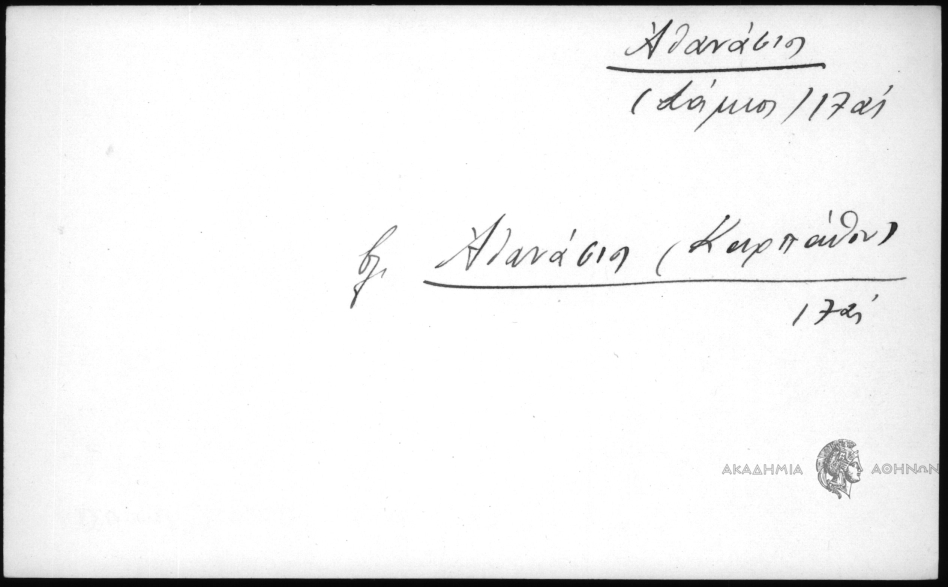 Ἀθανάσιος
(Σάμιος) 17 αἰ
βλ. Ἀθανάσιος (Καρπάθου)
17 αἰ
ΑΚΑΔΗΜΙΑ ΑΘΗΝΩΝ